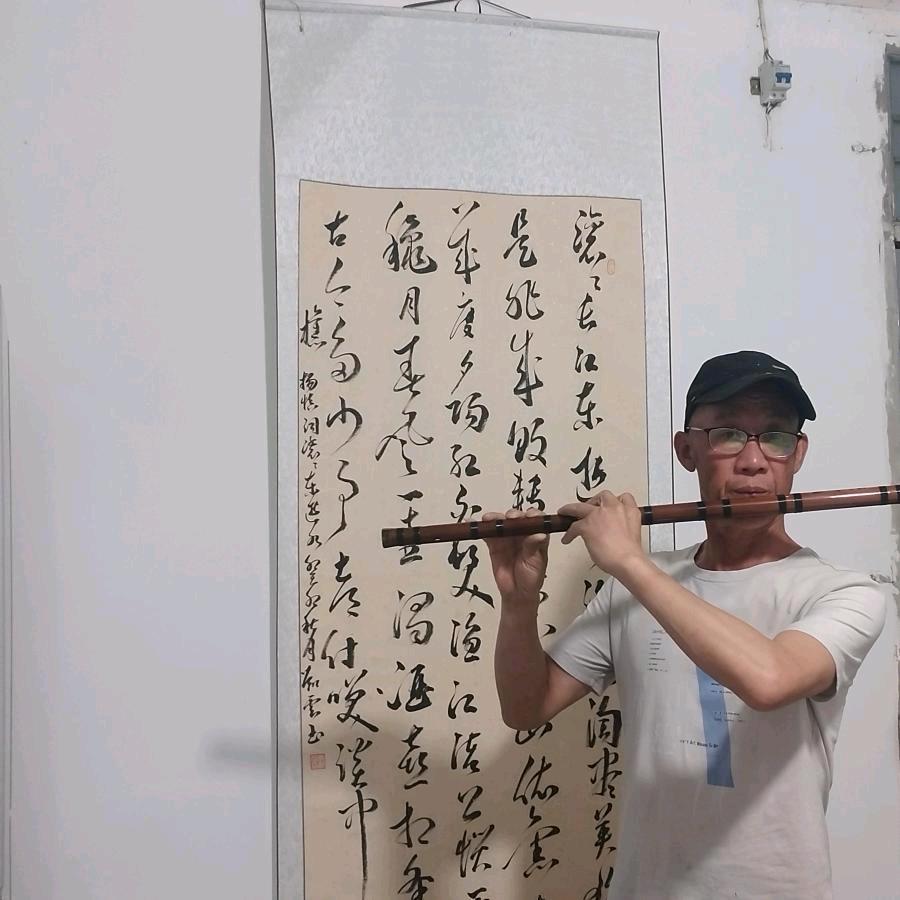 滚滚长江东逝
淘尽英
是非成败转
山依旧
几度夕阳红白发渔江渚上惯
秋月春风一壶浊酒喜相逢
古今多少事都付笑谈中
樵
杨慎词滚滚东逝水癸卯秋月
云书